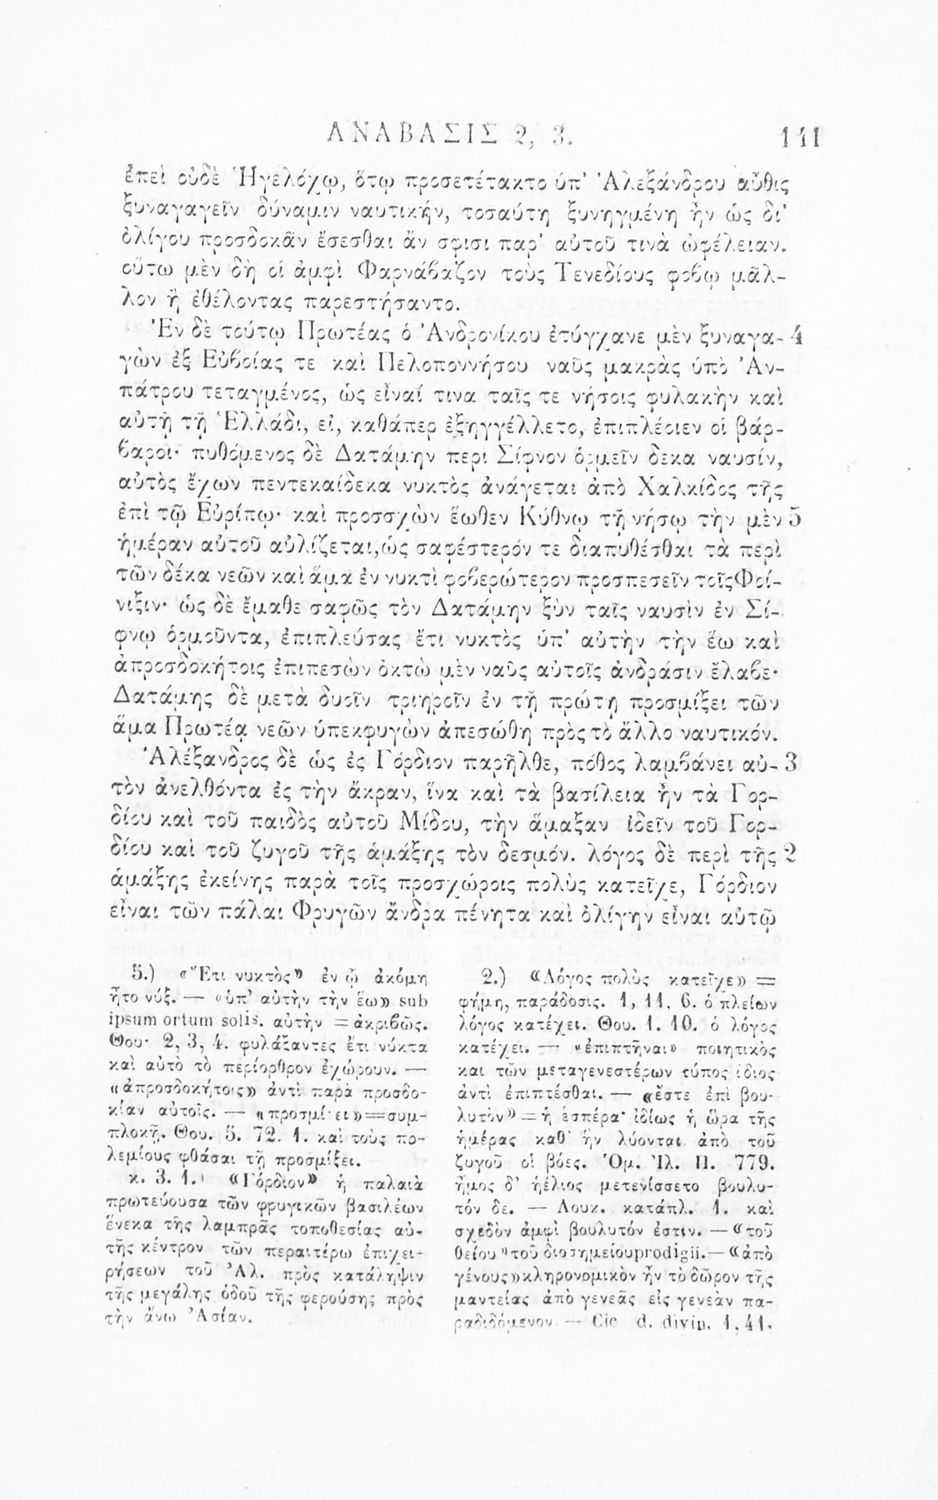 ΑΝΑΒΑΣΙΣ 2, 3. 141
ἐπεὶ οὐδὲ Ἡγελόχῳ, ὅτῳ προσετέτακτο ὑπ' Ἀλεξάνδρου αὖθις
ξυναγαγεῖν δύναμιν ναυτικήν, τοσαύτη ξυνηγμένη ἦν ὡς δι'
ὀλίγου προσδοκᾶν ἔσεσθαι ἄν σφισι παρ' αὐτοῦ τινὰ ὠφέλειαν.
οὕτω μὲν δὴ οἱ ἀμφὶ Φαρνάβαζον τοὺς Τενεδίους φόβῳ μᾶλ-
λον ἢ ἐθέλοντας παρεστήσαντο.
Ἐν δὲ τούτῳ Πρωτέας ὁ Ἀνδρονίκου ἐτύγχανε μὲν ξυναγα- 4
γὼν ἐξ Εὐβοίας τε καὶ Πελοποννήσου ναῦς μακρὰς ὑπὸ Ἀν-
πάτρου τεταγμένος, ὡς εἶναί τινα ταῖς τε νήσοις φυλακὴν καὶ
αὐτῇ τῇ Ἑλλάδι, εἰ, καθάπερ ἐξηγγέλλετο, ἐπιπλέοιεν οἱ βάρ-
βαροι· πυθόμενος δὲ Δατάμην περὶ Σίφνον ὁρμεῖν δεκα ναυσίν,
αὐτὸς ἔχων πεντεκαίδεκα νυκτὸς ἀνάγεται ἀπὸ Χαλκίδος τῆς
ἐπὶ τῷ Εὐρίπῳ· καὶ προσσχὼν ἕωθεν Κύθνῳ τῇ νήσῳ τὴν μὲν 5
ἡμέραν αὐτοῦ αὐλίζεται,ὡς σαφέστερόν τε διαπυθέσθαι τὰ περὶ
τῶν δέκα νεῶν καὶ ἅμα ἐν νυκτὶ φοβερώτερον προσπεσεῖν τοῖς Φοί-
νιξιν· ὡς δὲ ἔμαθε σαφῶς τὸν Δατάμην ξὺν ταῖς ναυσὶν ἐν Σί-
φνῳ ὁρμοῦντα, ἐπιπλεύσας ἔτι νυκτὸς ὑπ' αὐτὴν τὴν ἕω καὶ
ἀπροσδοκήτοις ἐπιπεσὼν ὀκτὼ μὲν ναῦς αὐτοῖς ἀνδράσιν ἔλαβε·
Δατάμης δὲ μετὰ δυοῖν τριηροῖν ἐν τῇ πρώτῃ προσμίξει τῶν
ἅμα Πρωτέᾳ νεῶν ὑπεκφυγὼν ἀπεσώθη πρὸς τὸ ἄλλο ναυτικόν.
Ἀλέξανδρος δὲ ὡς ἐς Γόρδιον παρῆλθε, πόθος λαμβάνει αὐ- 3
τὸν ἀνελθόντα ἐς τὴν ἄκραν, ἵνα καὶ τὰ βασίλεια ἦν τὰ Γορ-
δίου καὶ τοῦ παιδὸς αὐτοῦ Μίδου, τὴν ἅμαξαν ἰδεῖν τοῦ Γορ-
δίου καὶ τοῦ ζυγοῦ τῆς ἁμάξης τὸν δεσμόν. λόγος δὲ περὶ τῆς 2
ἁμάξης ἐκείνης παρὰ τοῖς προσχώροις πολὺς κατεῖχε, Γόρδιον
εἶναι τῶν πάλαι Φρυγῶν ἄνδρα πένητα καὶ ὀλίγην εἶναι αὐτῷ
5.) «Ἔτι νυκτὸς» ἐν ᾧ ἀκόμη
ἦτο νύξ. — «ὑπ' αὐτὴν τὴν ἕω» sub
ipsum ortum solis. αὐτὴν = ἀκριβῶς.
Θου· 2, 3, 4. φυλάξαντες ἔτι νύκτα
καὶ αὐτὸ τὸ περίορθρον ἐχώρουν. —
«ἀπροσδοκήτοις» ἀντὶ παρὰ προσδο-
κίαν αὐτοῖς. — «προσμίξει»=συμ-
πλοκῇ. Θου. 5. 72. 1. καὶ τοὺς πο-
λεμίους φθάσαι τῇ προσμίξει.
κ. 3. 1. «Γόρδιον» ἡ παλαιὰ
πρωτεύουσα τῶν φρυγικῶν βασιλέων
ἕνεκα τῆς λαμπρᾶς τοποθεσίας αὐ-
τῆς κέντρον τῶν περαιτέρω ἐπιχει-
ρήσεων τοῦ Ἀλ. πρὸς κατάληψιν
τῆς μεγάλης ὁδοῦ τῆς φερούσης πρὸς
τὴν ἄνω Ἀσίαν.
2.) «Λόγος πολὺς κατεῖχε» =
φήμη, παράδοσις. 1, 11, 6. ὁ πλείων
λόγος κατέχει. Θου. 1. 10. ὁ λόγος
κατέχει. — «ἐπιπτῆναι» ποιητικὸς
καὶ τῶν μεταγενεστέρων τύπος ἰδίος
ἀντὶ ἐπιπτέσθαι. — «ἔστε ἐπὶ βου-
λυτὸν» = ἡ ἑσπέρα· ἰδίως ἡ ὥρα τῆς
ἡμέρας καθ' ἣν λύονται ἀπὸ τοῦ
ζυγοῦ οἱ βόες. Ὁμ. Ἰλ. Π. 779.
ἦμος δ' ἠέλιος μετενίσσετο βουλυ-
τόν δε. — Λουκ. κατάπλ. 1. καὶ
σχεδὸν ἀμφὶ βουλυτόν ἐστιν. — «τοῦ
θείου» τοῦ διοσημείου prodigii.— «ἀπὸ
γένους» κληρονομικὸν ἦν τὸ δῶρον τῆς
μαντείας ἀπὸ γενεᾶς εἰς γενεὰν πα-
ραδιδόμενον — Cic d. divin. 1.41.